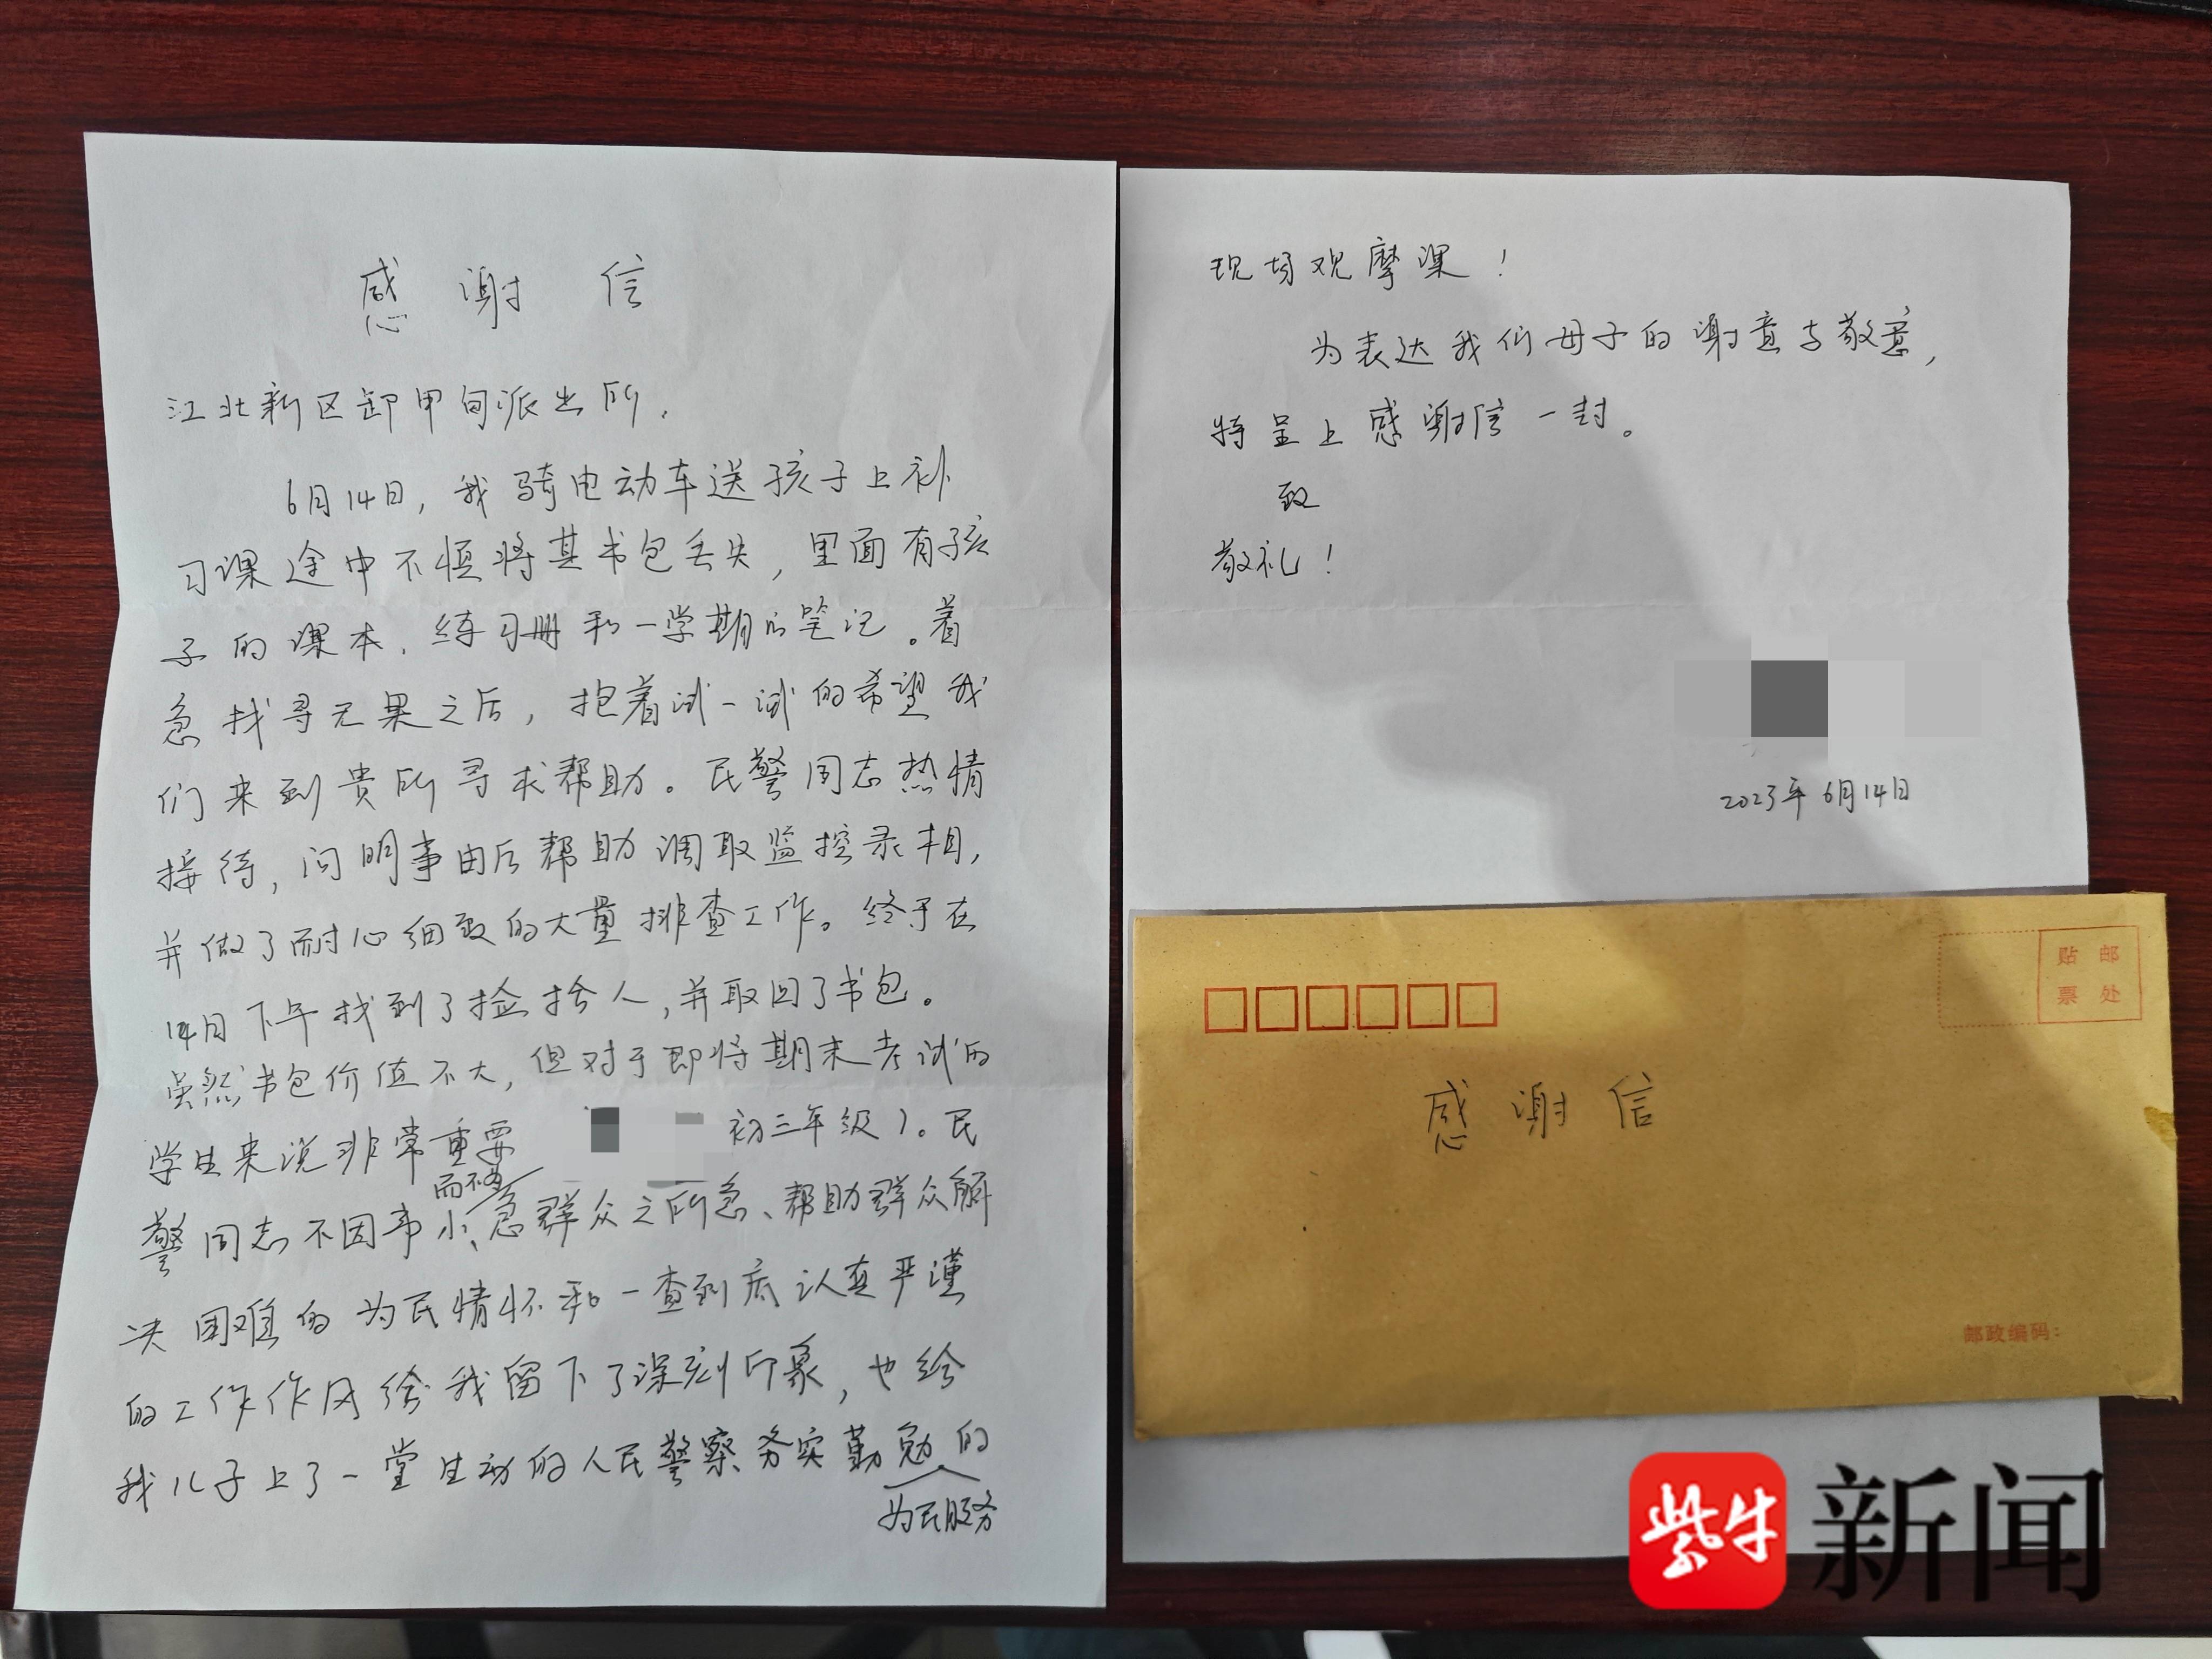 感谢信
江北新区卸甲甸派出所：
6月14日，我骑电动车送孩子上补
习课途中不慎将其书包丢失，里面有孩
子的课本、练习册和一学期的笔记。着
急找寻无果之后，抱着试一试的希望我
们来到贵所寻求帮助。民警同志热情
接待，问明事由后帮助调取监控录相，
并做了耐心细致的大量排查工作。终于在
14日下午找到了捡拾人，并取回了书包。
虽然书包价值不大，但对于即将期末考试的
学生来说非常重要 初三年级）。民
而不为
警同志不因事小、急群众之所急、帮助群众解
决困难的为民情怀和一查到底认真严谨
的工作作风给我留下了深刻印象，也给
我儿子上了一堂生动的人民警察务实勤勉的
为民服务
现场观摩课！
为表达我们母子的谢意与敬意，
特呈上感谢信一封。
致
敬礼！
2023年6月14日
贴邮
票处
感谢信
邮政编码：
紫牛新闻